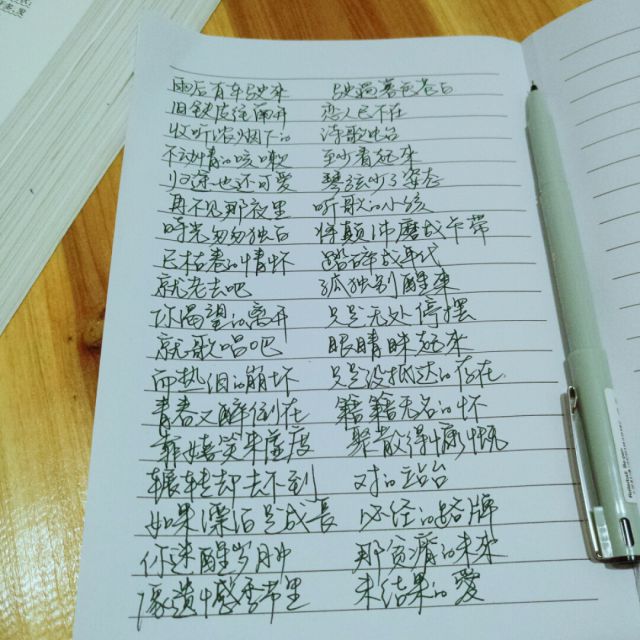 雨后有车驶来 驶过暮色苍白
旧铁皮往南开 恋人已不在
收听浓烟下的 诗歌电台
不动情的咳嗽 至少看起来
归途也还可爱 琴弦少了姿态
再不见那夜里 听歌的小孩
时光匆匆独白 将颠沛磨成卡带
已枯卷的情怀 踏碎成年代
就老去吧 孤独别醒来
你渴望的离开 只是无处停摆
就歌唱吧 眼睛眯起来
而热泪的崩坏 只是没抵达的存在
青春又醉倒在 籍籍无名的怀
靠嬉笑来虚度 聚散得慷慨
辗转却去不到 对的站台
如果漂泊是成长 必经的路牌
你迷醒岁月中 那贫瘠的未来
像遗憾季节里 未结果的爱